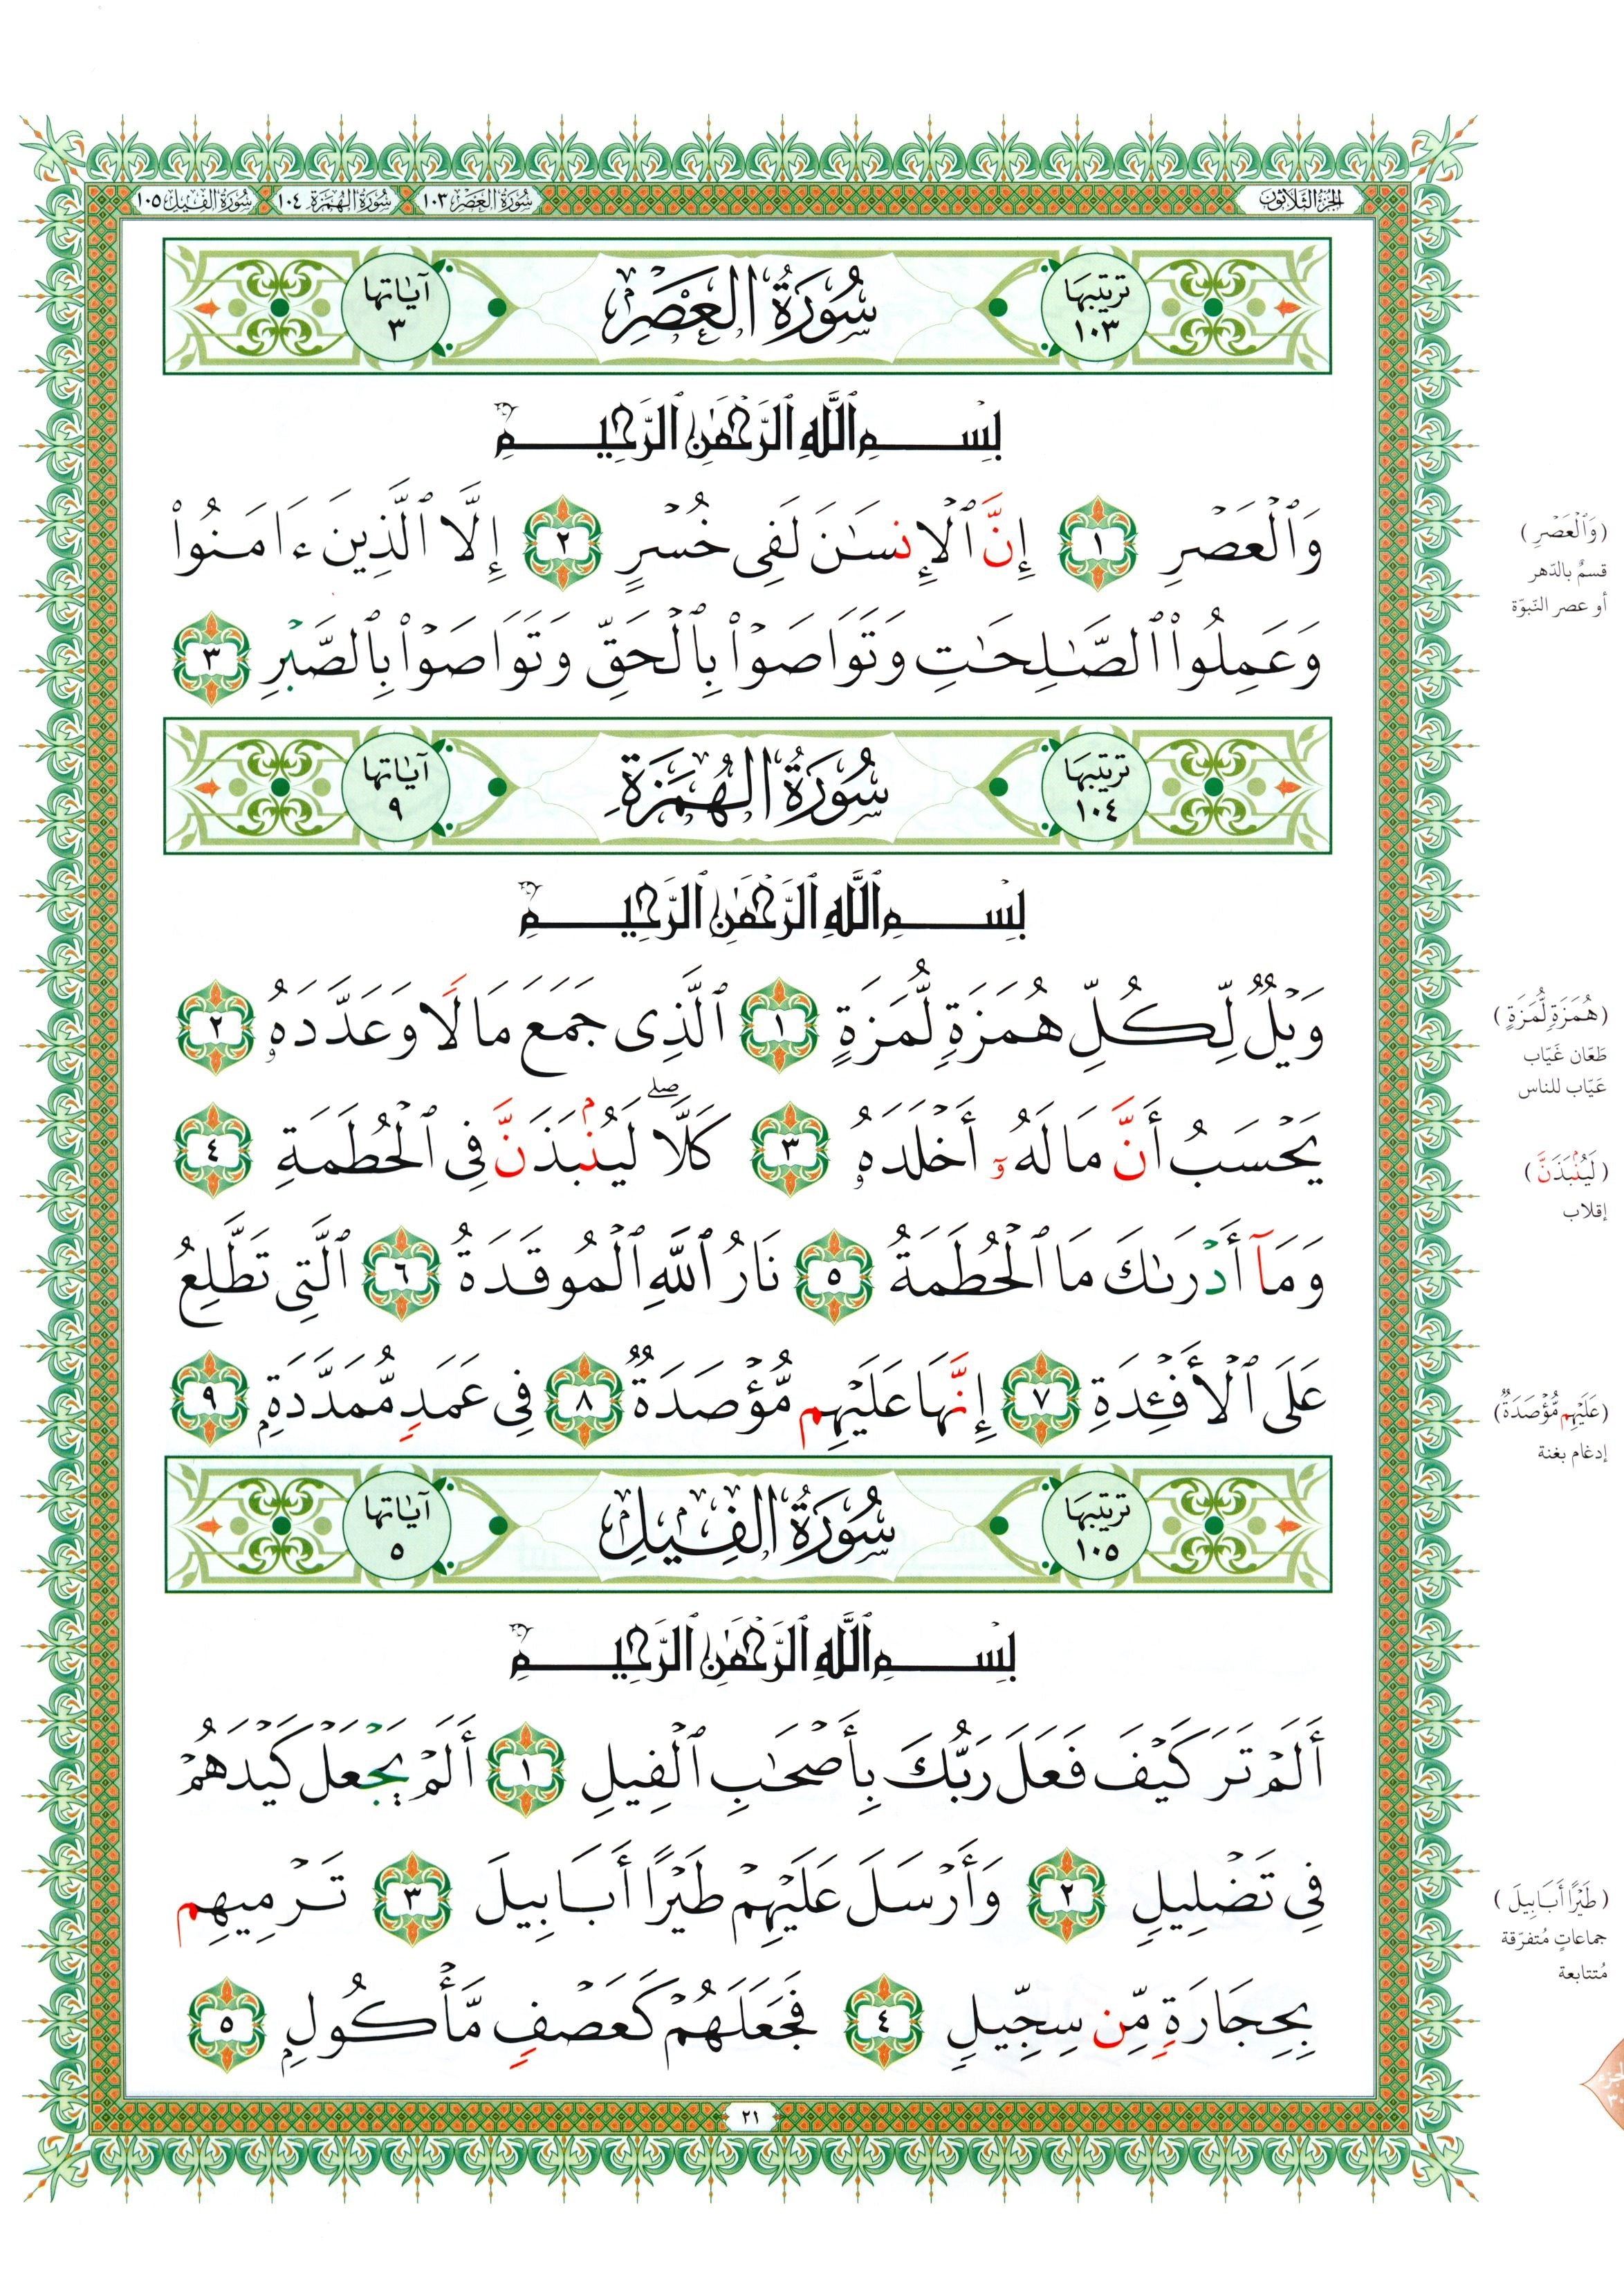 الجزء الثلاثون
سورة العصر ١٠٣ سورة الهمزة ١٠٤ سورة الفيل ١٠٥
ترتيبها ١٠٣
سُورَةُ العَصْرِ
آياتها ٣
بِسْمِ ٱللَّهِ ٱلرَّحْمَٰنِ ٱلرَّحِيمِ
وَٱلْعَصْرِ ١ إِنَّ ٱلْإِنسَٰنَ لَفِى خُسْرٍ ٢ إِلَّا ٱلَّذِينَ ءَامَنُوا۟
وَعَمِلُوا۟ ٱلصَّٰلِحَٰتِ وَتَوَاصَوْا۟ بِٱلْحَقِّ وَتَوَاصَوْا۟ بِٱلصَّبْرِ ٣
(وَٱلْعَصْرِ)
قسمٌ بالدّهر
أو عصر النّبوّة
ترتيبها ١٠٤
سُورَةُ الهُمَزَةِ
آياتها ٩
بِسْمِ ٱللَّهِ ٱلرَّحْمَٰنِ ٱلرَّحِيمِ
وَيْلٌ لِّكُلِّ هُمَزَةٍ لُّمَزَةٍ ١ ٱلَّذِى جَمَعَ مَالًا وَعَدَّدَهُۥ ٢
يَحْسَبُ أَنَّ مَالَهُۥٓ أَخْلَدَهُۥ ٣ كَلَّا ۖ لَيُنۢبَذَنَّ فِى ٱلْحُطَمَةِ ٤
وَمَآ أَدْرَىٰكَ مَا ٱلْحُطَمَةُ ٥ نَارُ ٱللَّهِ ٱلْمُوقَدَةُ ٦ ٱلَّتِى تَطَّلِعُ
عَلَى ٱلْأَفْـِٔدَةِ ٧ إِنَّهَا عَلَيْهِم مُّؤْصَدَةٌ ٨ فِى عَمَدٍ مُّمَدَّدَةٍۭ ٩
(هُمَزَةٍ لُّمَزَةٍ)
طَعّان غَيّاب
عَيّاب للناس
(لَيُنۢبَذَنَّ)
إقلاب
(عَلَيْهِم مُّؤْصَدَةٌ)
إدغام بغنة
ترتيبها ١٠٥
سُورَةُ الفِيلِ
آياتها ٥
بِسْمِ ٱللَّهِ ٱلرَّحْمَٰنِ ٱلرَّحِيمِ
أَلَمْ تَرَ كَيْفَ فَعَلَ رَبُّكَ بِأَصْحَٰبِ ٱلْفِيلِ ١ أَلَمْ يَجْعَلْ كَيْدَهُمْ
فِى تَضْلِيلٍ ٢ وَأَرْسَلَ عَلَيْهِمْ طَيْرًا أَبَابِيلَ ٣ تَرْمِيهِم
بِحِجَارَةٍ مِّن سِجِّيلٍ ٤ فَجَعَلَهُمْ كَعَصْفٍ مَّأْكُولٍۭ ٥
(طَيْرًا أَبَابِيلَ)
جماعاتٍ مُتفرّقة
مُتتابعة
٢١